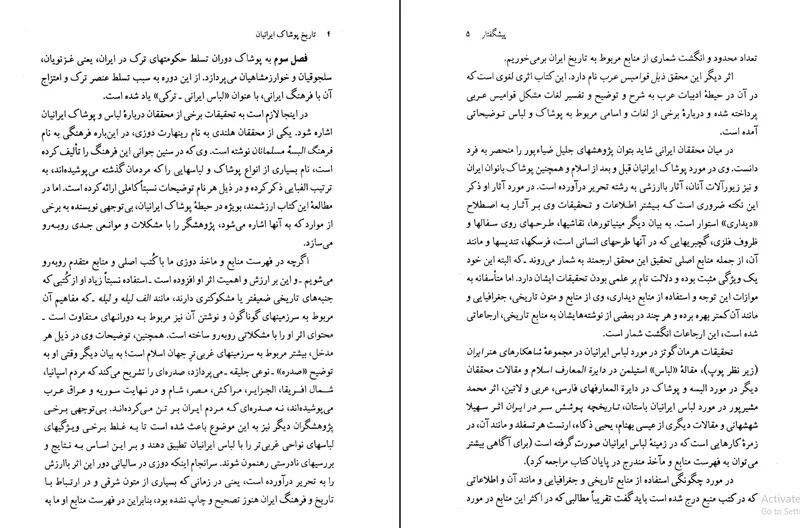 ۴ تاریخ پوشاک ایرانیان
فصل سوم به پوشاک دوران تسلط حکومتهای ترک در ایران، یعنی غزنویان،
سلجوقیان و خوارزمشاهیان می‌پردازد. از این دوره به سبب تسلط عنصر ترک و امتزاج
آن با فرهنگ ایرانی، با عنوان «لباس ایرانی ـ ترکی» یاد شده است.
در اینجا لازم است به تحقیقات برخی از محققان دربارهٔ لباس و پوشاک ایرانیان
اشاره شود. یکی از محققان هلندی به نام رینهارت دوزی، در این‌باره فرهنگی به نام
فرهنگ البسهٔ مسلمانان نوشته است. وی که در سنین جوانی این فرهنگ را تألیف کرده
است، نام بسیاری از انواع پوشاک و لباسهایی را که مردمان گذشته می‌پوشیده‌اند، به
ترتیب الفبایی ذکر کرده و در ذیل هر نام توضیحات نسبتاً کاملی ارائه کرده است. اما در
مطالعهٔ این کتاب ارزشمند، بویژه در حیطهٔ پوشاک ایرانیان، بی‌توجهی نویسنده به برخی
از موارد که به آنها اشاره می‌شود، پژوهشگر را با مشکلات و موانعی جدی روبه‌رو
می‌سازد.
اگرچه در فهرست منابع و مآخذ دوزی ما با کُتب اصلی و منابع متقدم روبه‌رو
می‌شویم ـ و این بر ارزش و اهمیت اثر او افزوده است ـ استفاده نسبتاً زیاد او از کُتبی که
جنبه‌های تاریخی ضعیفتر یا مشکوکتری دارند، مانند الف لیله و لیله ـ که مفاهیم آن
مربوط به سرزمینهای گوناگون و نوشتن آن نیز مربوط به دورانهای متفاوت است ـ
محتوای اثر او را با مشکلاتی روبه‌رو ساخته است. همچنین، توضیحات وی در ذیل هر
مدخل، بیشتر مربوط به سرزمینهای غربی‌تر جهان اسلام است؛ به بیان دیگر وقتی او به
توضیح «صدره» ـ نوعی جلیقه ـ می‌پردازد، صدره‌ای را تشریح می‌کند که مردم اسپانیا،
شمال افریقا، الجزایر، مراکش، مصر، شام و در نهایت سوریه و عراق عرب
می‌پوشیده‌اند، نه صدره‌ای که مردم ایران بر تن می‌کرده‌اند. بی‌توجهی برخی
پژوهشگران دیگر نیز به این موضوع باعث شده است تا به غلط برخی ویژگیهای
لباسهای نواحی غربی‌تر را با لباس ایرانیان تطبیق دهند و بر این اساس به نتایج و
بررسیهای نادرستی رهنمون شوند. سرانجام اینکه دوزی در سالیانی دور این اثر باارزش
را به تحریر درآورده است، یعنی در زمانی که بسیاری از متون شرقی و در ارتباط با
تاریخ و فرهنگ ایران هنوز تصحیح و چاپ نشده بود، بنابراین در فهرست منابع او ما به
پیشگفتار ۵
تعداد محدود و انگشت شماری از منابع مربوط به تاریخ ایران برمی‌خوریم.
اثر دیگر این محقق ذیل قوامیس عرب نام دارد. این کتاب اثری لغوی است که
در آن در حیطهٔ ادبیات عرب به شرح و توضیح و تفسیر لغات مشکل قوامیس عربی
پرداخته شده و دربارهٔ برخی از لغات و اسامی مربوط به پوشاک و لباس توضیحاتی
آمده است.
در میان محققان ایرانی شاید بتوان پژوهشهای جلیل ضیاءپور را منحصر به فرد
دانست. وی در مورد پوشاک ایرانیان قبل و بعد از اسلام و همچنین پوشاک بانوان ایران
و نیز زیورآلات آنان، آثار باارزشی به رشته تحریر درآورده است. در مورد آثار او ذکر
این نکته ضروری است که بیشتر اطلاعات و تحقیقات وی بر آثار به اصطلاح
«دیداری» استوار است. به بیان دیگر مینیاتورها، نقاشیها، طرحهای روی سفالها و
ظروف فلزی، گچبریهایی که در آنها طرحهای انسانی است، فرسکها، تندیسها و مانند
آن، از جمله منابع اصلی تحقیق این محقق ارجمند به شمار می‌روند ـ که البته این خود
یک ویژگی مثبت بوده و دلالت تام بر علمی بودن تحقیقات ایشان دارد. اما متأسفانه به
موازات این توجه و استفاده از منابع دیداری، وی از منابع و متون تاریخی، جغرافیایی و
مانند آن کمتر بهره برده و هر چند در بعضی از نوشته‌هایشان به منابع تاریخی، ارجاعاتی
شده است، این ارجاعات انگشت شمار است.
تحقیقات هرمان گوتز در مورد لباس ایرانیان در مجموعهٔ شاهکارهای هنر ایران
(زیر نظر پوپ)، مقالهٔ «لباس» استیلمن در دایرة المعارف اسلام و مقالات محققان
دیگر در مورد البسه و پوشاک در دایرة المعارفهای فارسی، عربی و لاتین، اثر محمد
مشیرپور در مورد لباس ایرانیان باستان، تاریخچه پوشش سر در ایران اثر سهیلا
شهشهانی و مقالات دیگری از عیسی بهنام، یحیی ذکاء، ارنست هرتسفلد و مانند آن، در
زمرهٔ کارهایی است که در زمینهٔ لباس ایرانیان صورت گرفته است (برای آگاهی بیشتر
می‌توان به فهرست منابع و مآخذ مندرج در پایان کتاب مراجعه کرد).
در مورد چگونگی استفاده از منابع تاریخی و جغرافیایی و مانند آن و اطلاعاتی
که در کتب منبع درج شده است باید گفت تقریباً مطالبی که در اکثر این منابع در مورد
Activate
Go to Setti